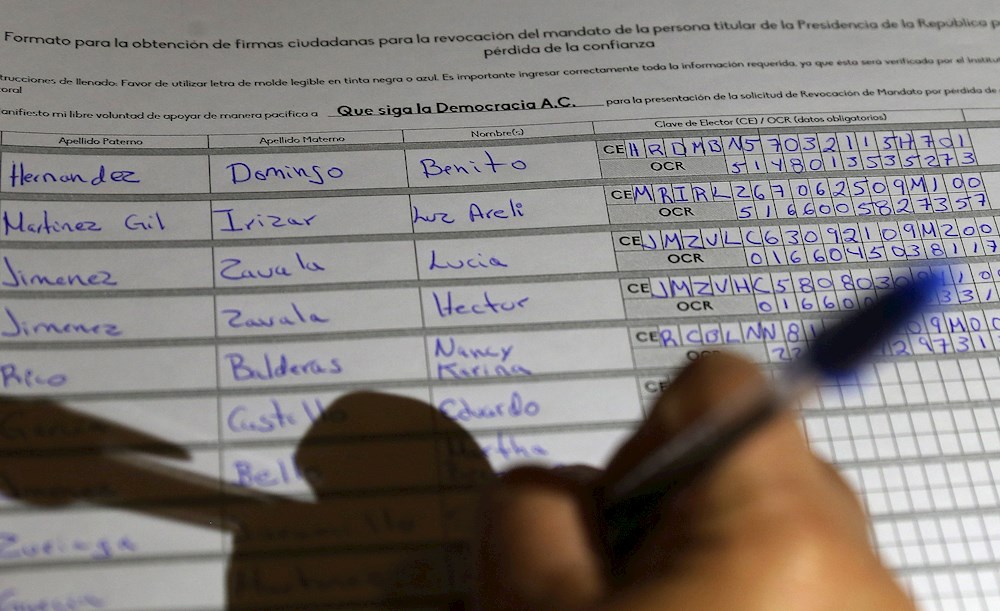 Formato para la obtención de firmas ciudadanas para la revocación del mandato de la persona titular de la Presidencia de la República p
pérdida de la confianza
trucciones de llenado: Favor de utilizar letra de molde legible en tinta negra o azul. Es importante ingresar correctamente toda la información requerida, ya que esta será verificada por el Institu
oral
anifiesto mi libre voluntad de apoyar de manera pacífica a Que siga la Democracia A.C. para la presentación de la solicitud de Revocación de Mandato por pérdida de
Apellido Paterno Apellido Materno Nombre(s) Clave de Elector (CE) / OCR (datos obligatorios)
Hernandez Domingo Benito CE HRDMBN57032115H701
OCR 5148013535273
Martinez Gil Irizar Luz Areli CE MRIRLZ67062509M100
OCR 5166005827357
Jimenez Zavala Lucia CE JMZVLC63092109M200
OCR 0166045038117
Jimenez Zavala Hector CE JMZVHC580803
OCR 01660 331
Rico Balderas Nancy CE RCBLNN8 09M00
Karina OCR 22 29731
Castillo Eduardo CE
Bell